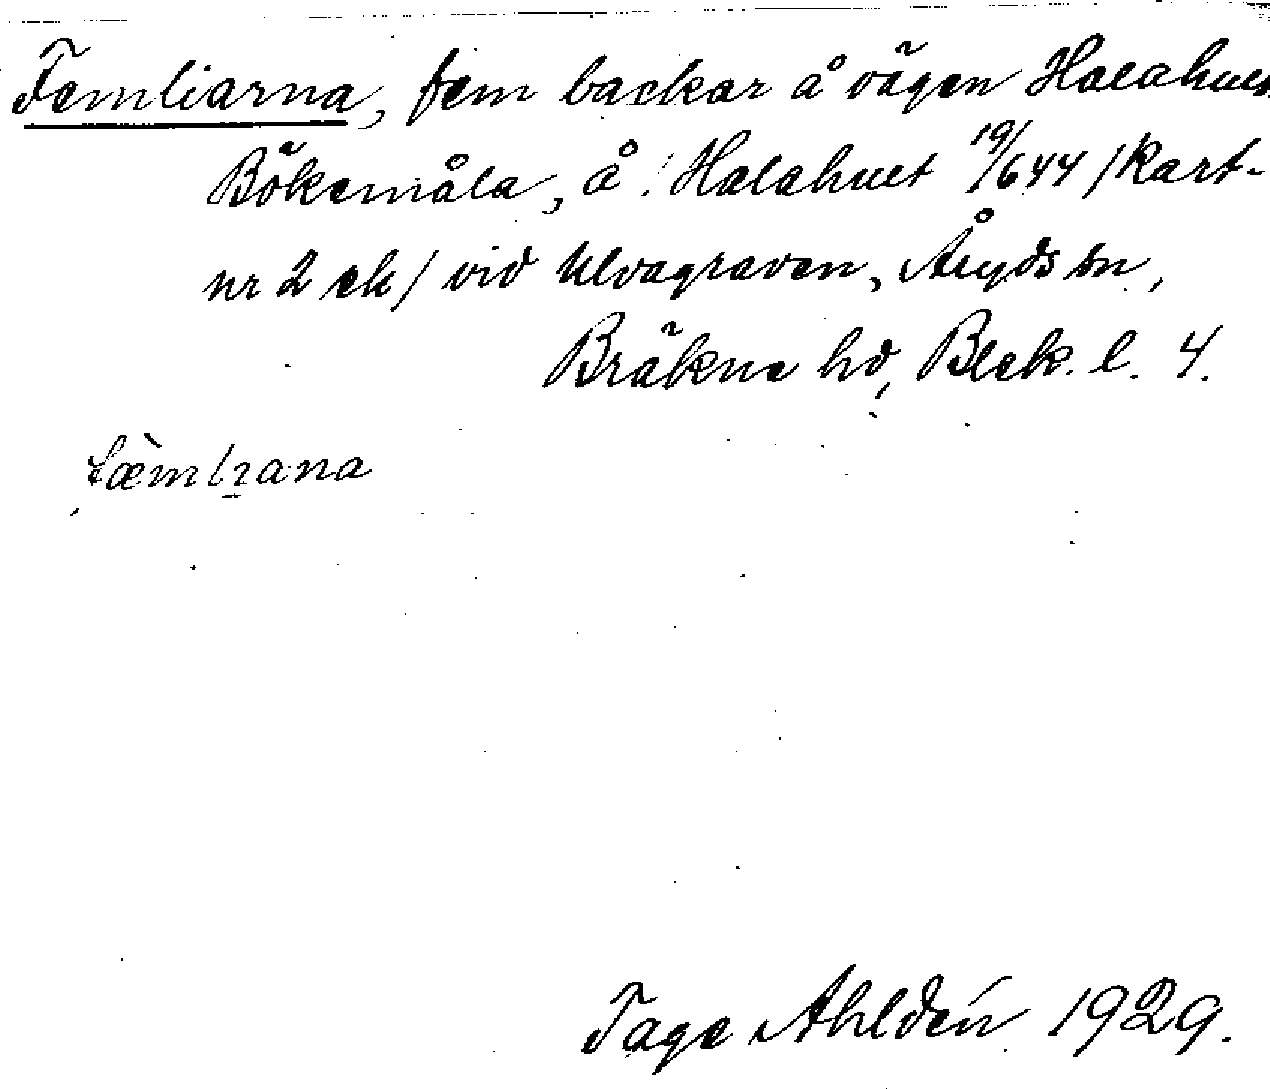 Femliarna, fem backar å vägen Halahult
Bökemåla, å Halahult 19/644 /kart-
nr 2 ek/ vid Ulvagraven, Åryds sn,
Bräkne hd, Blek. l. 4.
fæ̀mlıana
Tage Ahldén 1929.